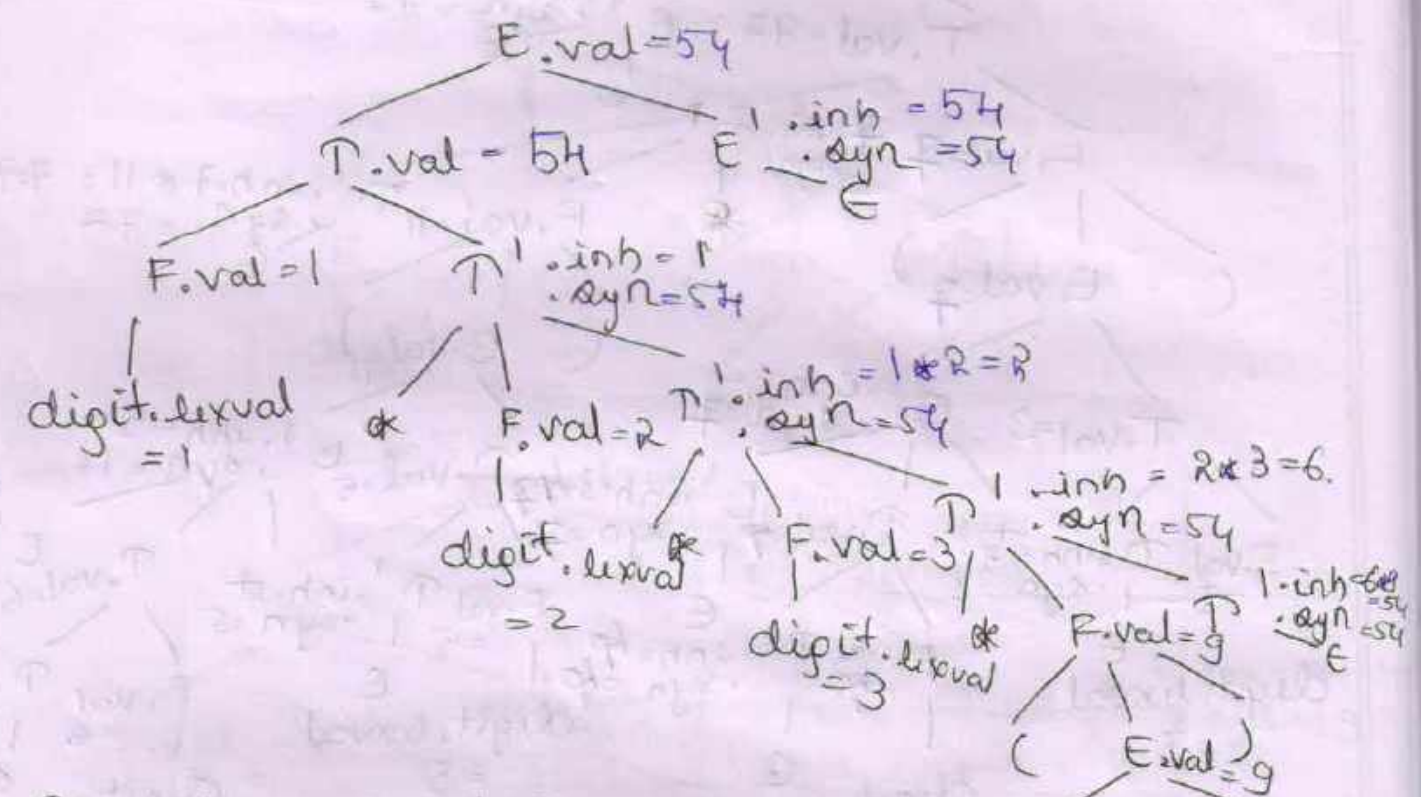 E.val=54
T.val = 54 E' .inh = 54
.syn = 54
ε
F.val=1 T' .inh = 1
.syn=54
digit.lexval * F.val=2 T' .inh = 1*2=2
=1 .syn=54
digit.lexval * F.val=3 T' .inh = 2*3=6.
=2 .syn=54
digit.lexval * F.val=9 T' .inh=6*9
=3 =54
.syn=54
ε
( E.val=9 )